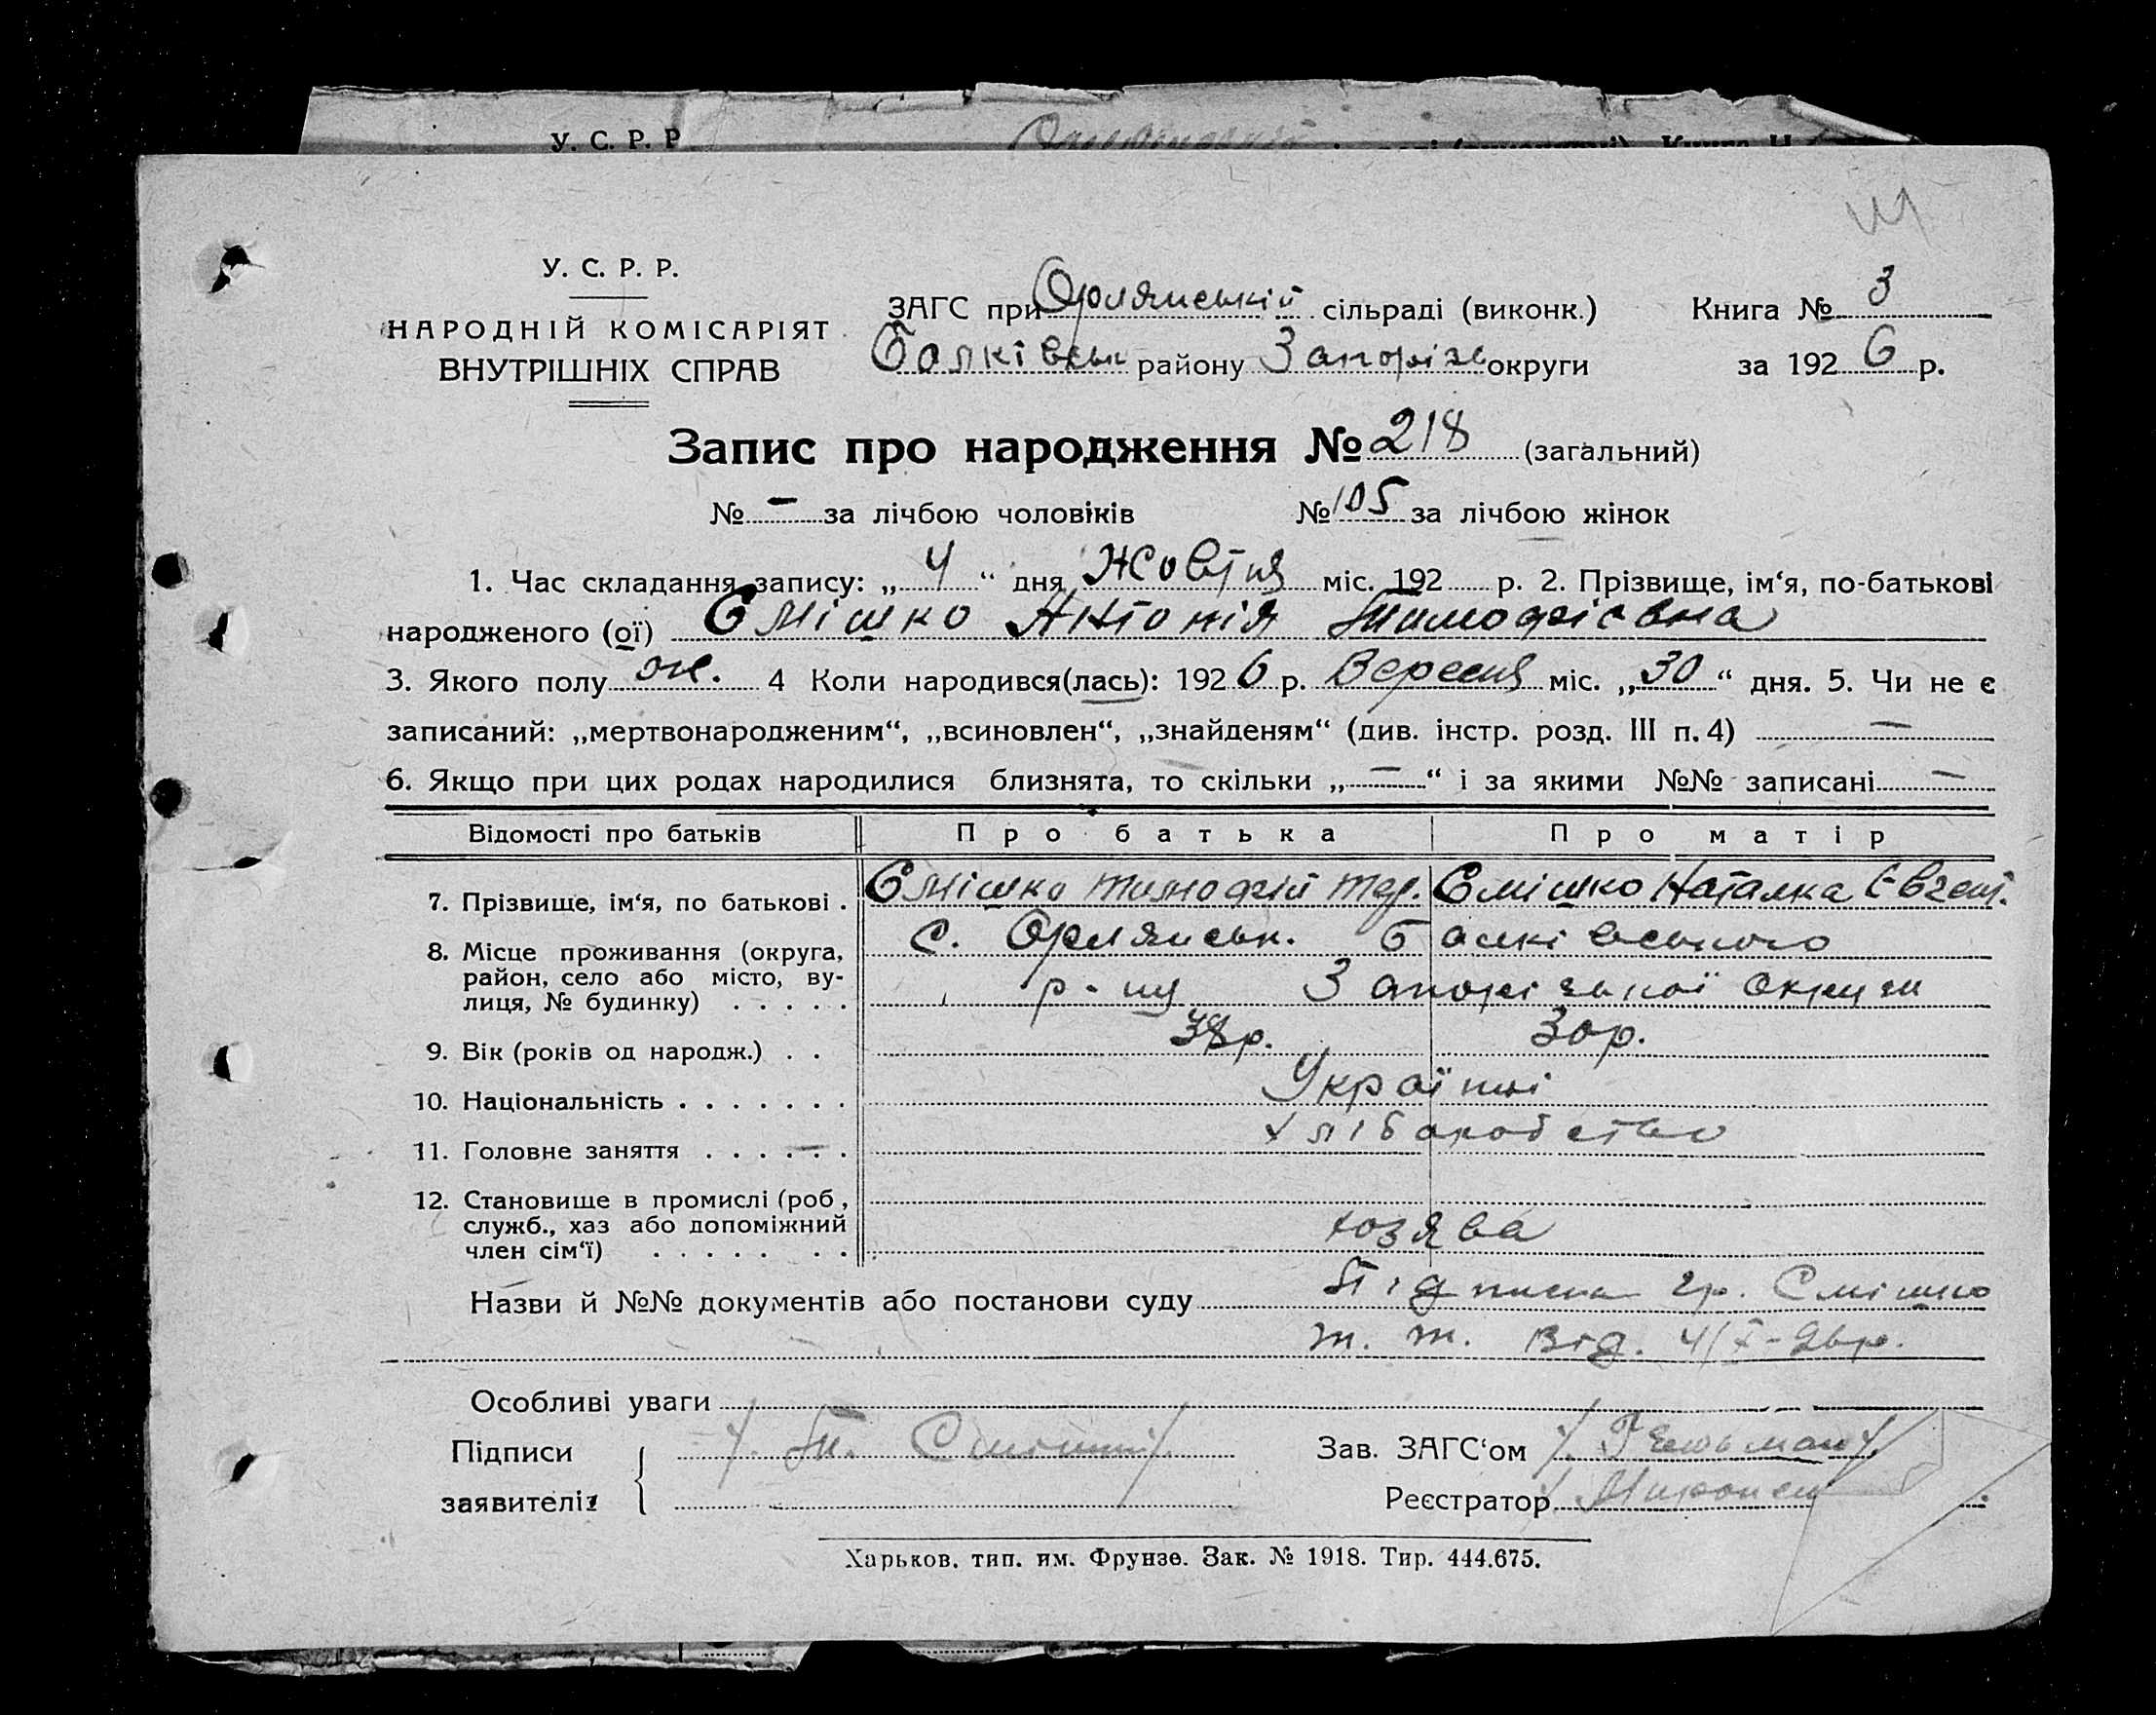 У. С. Р. Р
У. С. Р. Р.
НАРОДНІЙ КОМІСАРІЯТ
ВНУТРІШНІХ СПРАВ
ЗАГС при Орлянській сільраді (виконк.) Книга № 3
Балківськ району Запоріж округи за 1926 р.
Запис про народження № 218 (загальний)
№ – за лічбою чоловіків № 105 за лічбою жінок
1. Час складання запису: „4“ дня Жовтня міс. 192 р. 2. Прізвище, ім‘я, по-батькові
народженого (ої) Смішко Антонія Тимофієвна
3. Якого полу ж. 4 Коли народився(лась): 1926 р. Вересня міс. „30“ дня. 5. Чи не є
записаний: „мертвонародженим“, „всиновлен“, „знайденям“ (див. інстр. розд. III п. 4) –
6. Якщо при цих родах народилися близнята, то скільки „–“ і за якими №№ записані –
Відомості про батьків Про батька Про матір
7. Прізвище, ім‘я, по батькові . Смішко Тимофій Смішко Наталка Євген.
8. Місце проживання (округа, с. Орлянськ. Балківського
район, село або місто, ву-
лиця, № будинку) . . . . . р-ну Запорізької округи
9. Вік (років од народж.) . . 38р. 30р.
10. Національність . . . . . . . Українці
11. Головне заняття . . . . . . хліборобство
12. Становище в промислі (роб,
служб., хаз або допоміжний
член сім‘ї) . . . . . . . хозяєва
Назви й №№ документів або постанови суду Підписка гр. Смішко
Т. Т. від. 4/X-26р.
Особливі уваги
Підписи /. Т. Смішко/. Зав. ЗАГС‘ом /.Гельман/.
заявителів Реєстратор
Харьков. тип. им. Фрунзе. Зак. № 1918. Тир. 444.675.